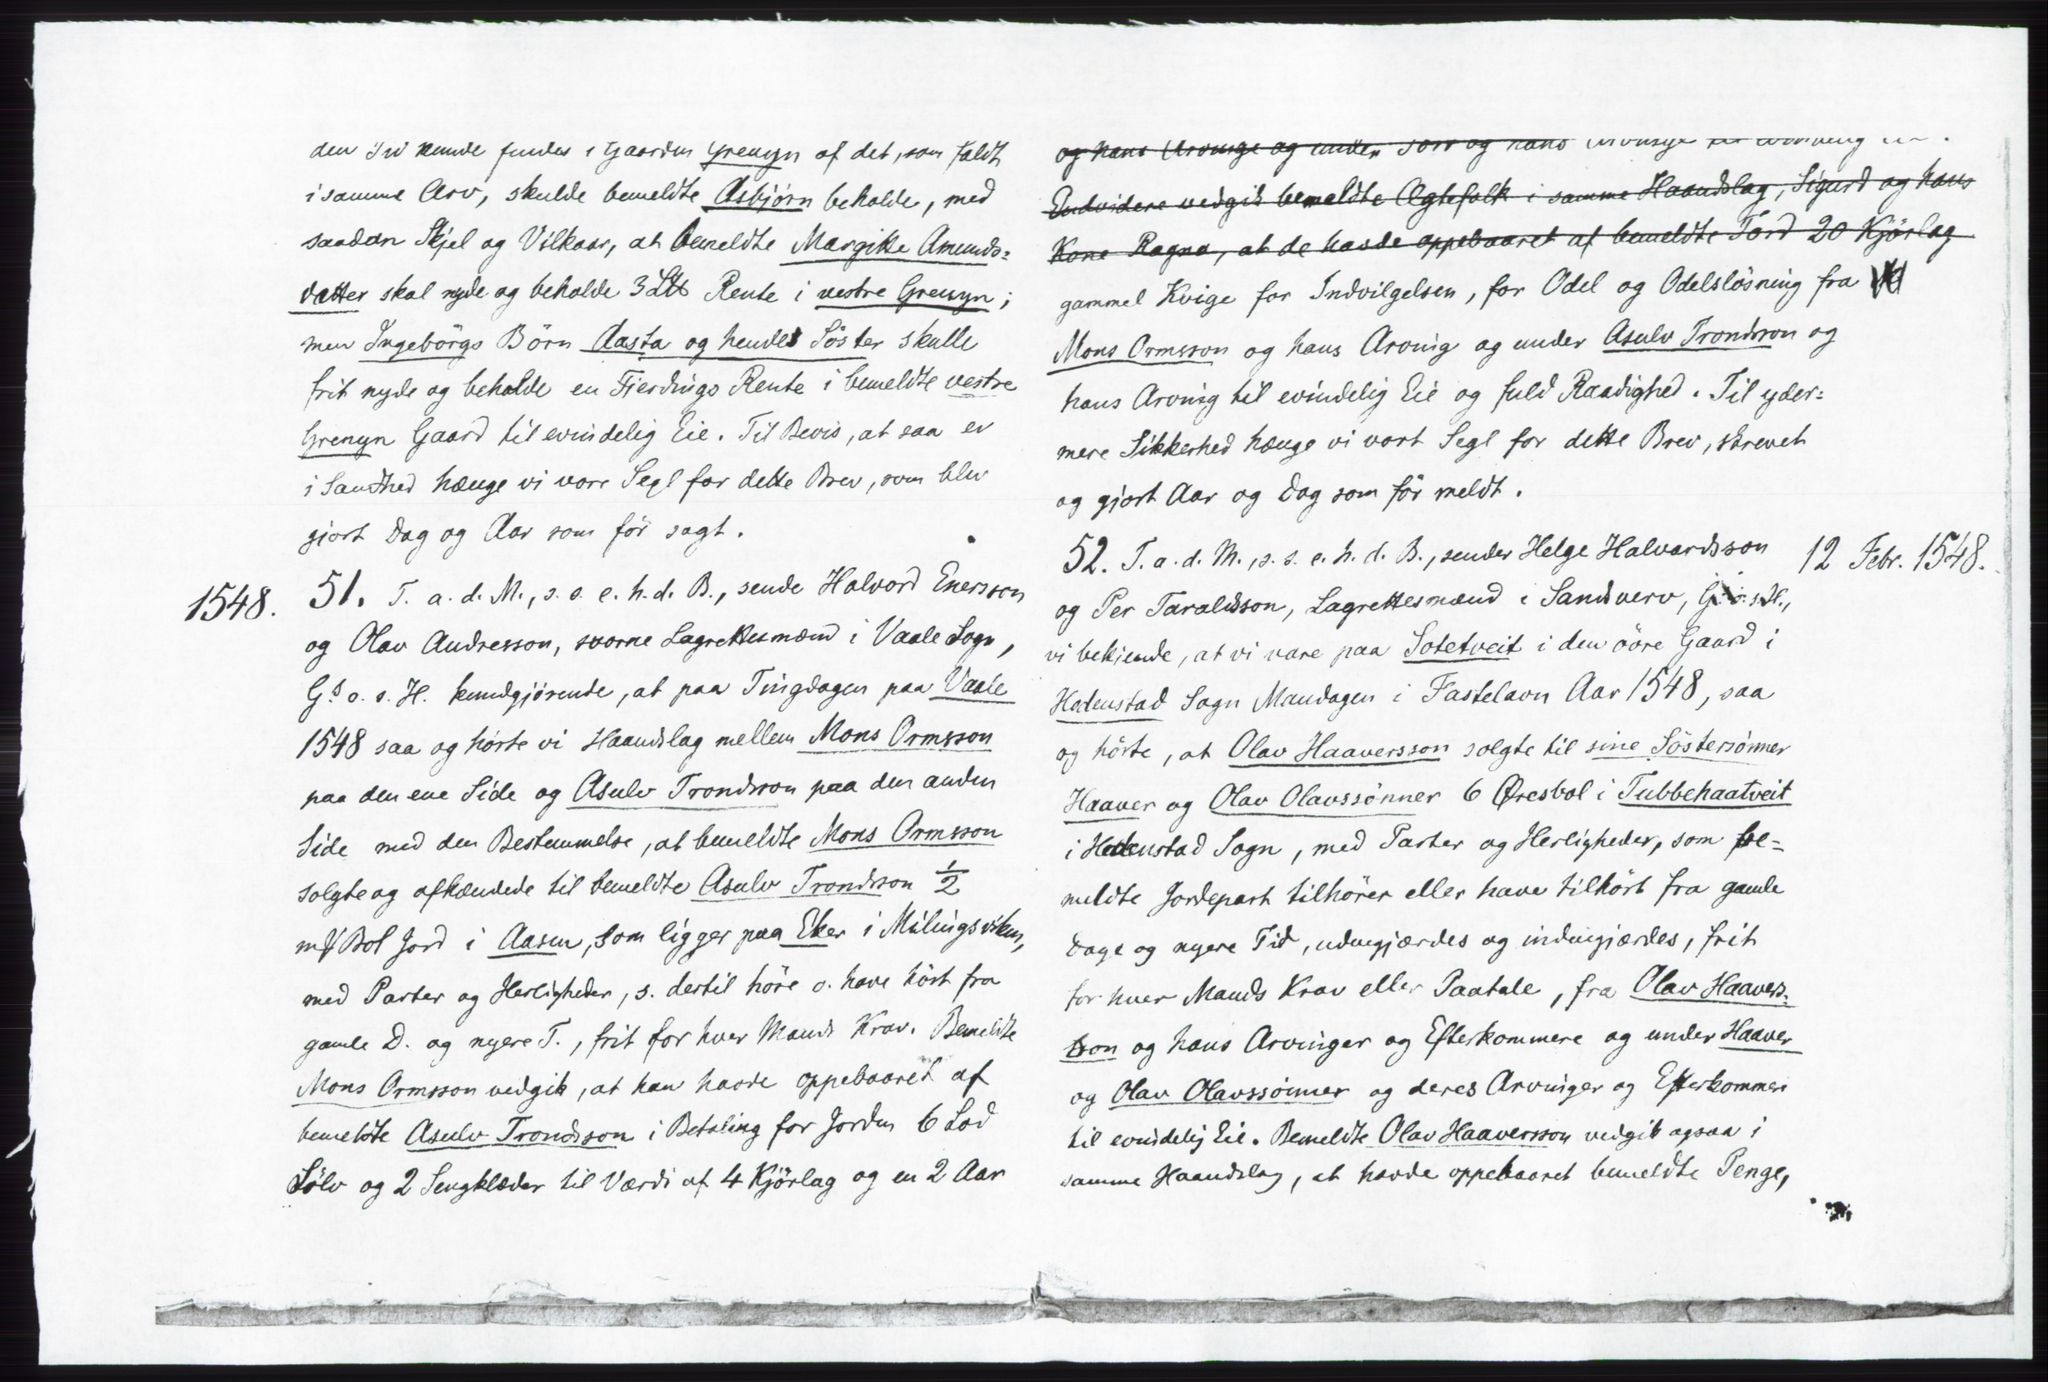 den Tid kunde findes i Gaarden Grenyn af det, som faldt
i samme Arv, skulde bemeldte Asbjørn beholde, med
saadan Skjel og Vilkaar, at bemeldte Margitte Amunds-
datter skal nyde og beholde 3 Rente i vestre Grenyn;
men Ingebörgs Börn Aasta og hendes Söster skulle
frit nyde og beholde en Fierdings Rente i bemeldte vestre
Grenyn Gaard til evindelig Eie. Til Bevis, at saa er
i Sandhed hænge vi vore Segl for dette Brev, som blev
gjort Dag og Aar som för sagt.
1548. 51. T. a. d. M., s. s. e. h. d. B., sende Halvord Enersson
og Olav Andresson, svorne Lagrettesmænd i Vaale Sogn,
Gs o. s. H. kundgjörende, at paa Tingdagen paa Vaale
1548 saa og hörte vi Haandslag mellem Mons Ormsson
paa den ene Side og Asulv Trondsson paa den anden
Side med den Bestemmelse, at bemeldte Mons Ormsson
solgte og afhændede til bemeldte Asulv Trondsson ½
Bol Jord i Aasen, som ligger paa Eker i Milingsviken,
med Parter og Herligheder, s. dertil höre o. have hört fra
gamle D. og nyere T., frit for hver Mands Krav. Bemeldte
Mons Ormsson vedgik, at han havde oppebaaret af
bemeldte Asulv Trondsson i Betaling for Jorden 6 Lod
Sölv og 2 Sengklæder til Værdi af 4 Kjörlag og en 2 Aar
og hans Arvinge og under og hans
Endvidere vedgik bemeldte Ægtefolk i samme Haandslag, Sigurd og hans
Kone Ragna, at de havde oppebaaret af bemeldte Tord 20 Kjörlag
gammel Kvige for Indvilgelsen, for Odel og Odelslösning fra
Mons Ormsson og hans Arving og under Asulv Trondsson og
hans Arving til evindelig Eie og fuld Raadighed. Til yder-
mere Sikkerhed hænge vi vort Segl for dette Brev, skrevet
og gjort Aar og Dag som för meldt.
52. T. a. d. M., s. s. e. h. d. B., sender Helge Halvardsson 12 Febr. 1548.
og Per Taraldsson, Lagrettesmænd i Sandsverv, G. o. s. H.,
vi bekjende, at vi vare paa Sotetveit i den övre Gaard i
Hedenstad Sogn Mandagen i Fastelavn Aar 1548, saa
og hörte, at Olav Haaversson solgte til sine Söstersönner
Haaver og Olav Olavssönner 6 Øresbol i Tubbehaatveit
i Hedenstad Sogn, med Parter og Herligheder, som be-
meldte Jordepart tilhörer eller have tilhört fra gamle
Dage og nyere Tid, udengjærdes og indengjærdes, frit
for hver Mands Krav eller Paatale, fra Olav Haavers-
son og hans Arvinger og Efterkommere og under Haaver
og Olav Olavssönner og deres Arvinger og Efterkommere
til evindelig Eie. Bemeldte Olav Haaversson vedgik ogsaa i
samme Haandslag, at havde oppebaaret bemeldte Penge,